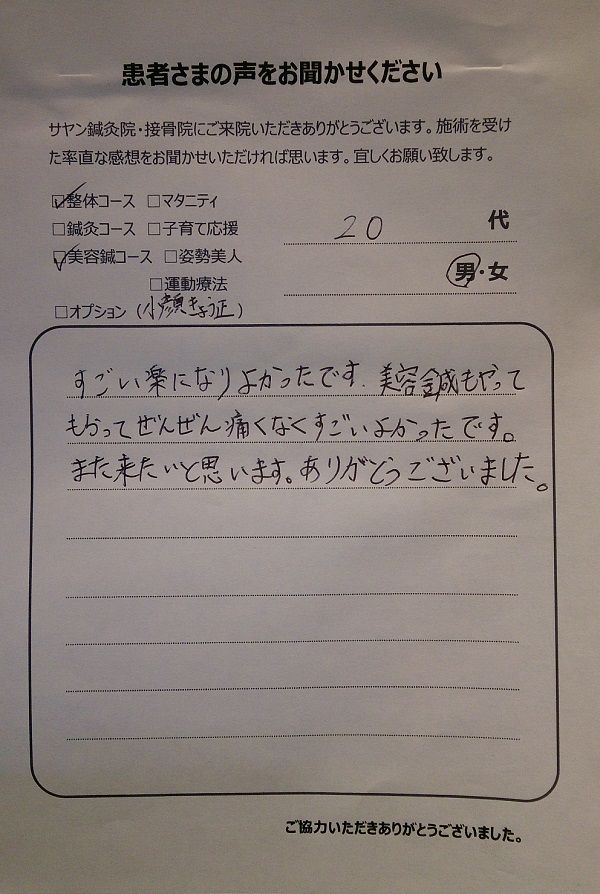 患者さまの声をお聞かせください
サヤン鍼灸院・接骨院にご来院いただきありがとうございます。施術を受け
た率直な感想をお聞かせいただければ思います。宜しくお願い致します。
☑整体コース □マタニティ
□鍼灸コース □子育て応援
☑美容鍼コース □姿勢美人
□運動療法
□オプション（小顔きょう正）
20 代
男・女
すごい楽になりよかったです. 美容鍼もやって
もらってぜんぜん痛くなくすごいよかったです。
また来たいと思います。ありがとうございました。
ご協力いただきありがとうございました。